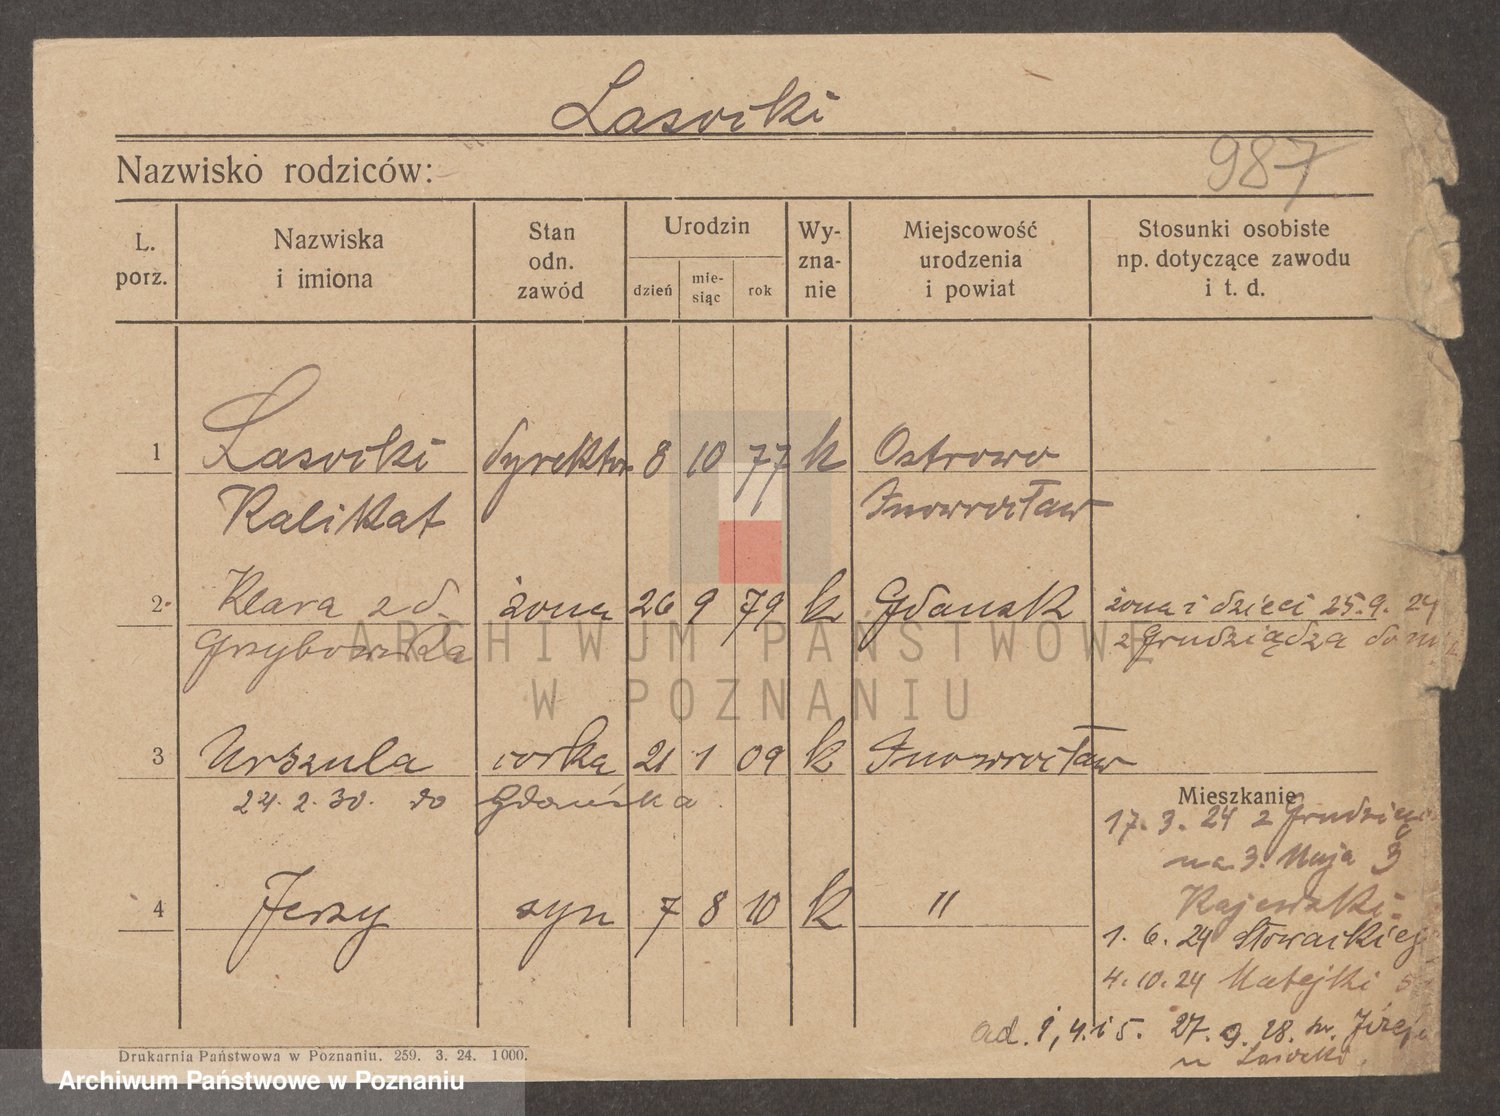 Lasocki
987
Nazwisko rodziców:
L. porz.
Nazwiska i imiona
Stan odn. zawód
Urodzin
dzień
mie-siąc
rok
Wy-zna-nie
Miejscowość urodzenia i powiat
Stosunki osobiste np. dotyczące zawodu i t. d.
1 Lasocki dyrektor 8 10 77 k Ostrowo
Kalikst Inowrocław
2 Klara z d. żona 26 9 79 k Gdansk żona i dzieci 25.9. 24
Grzybowska z Grudziądza do m
3 Urszula corka 21 1 09 k Inowrocław
24. 2. 30. do Gdańska
Mieszkanie
17. 3. 24 z Grudzią
na 3. Maja 3
Kajewski
4 Jerzy syn 7 8 10 k "
1. 6. 24 Słowackieg
4. 10. 24 Matejki 5
ad. 1, 4. i 5. 27. 9. 28.
u Lasocki
Drukarnia Państwowa w Poznaniu. 259. 3. 24. 1000.
ARCHIWUM PAŃSTWOWE
W POZNANIU
Archiwum Państwowe w Poznaniu